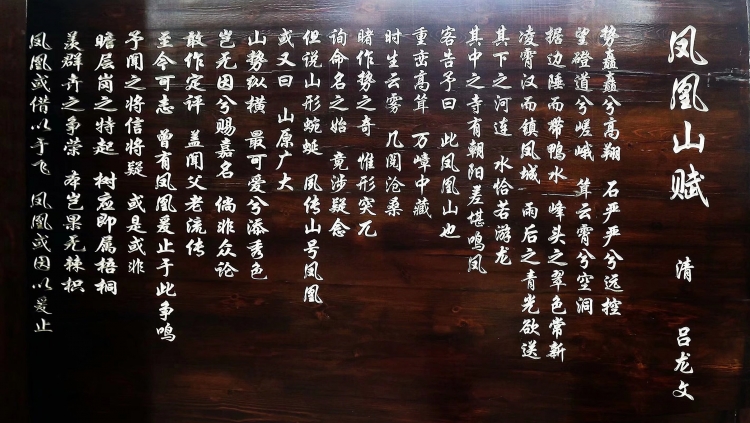 凤凰山赋 清 吕龙文
势矗矗兮高翔 石严严兮远控
望磴道兮嵯峨 耸云霄兮空洞
据边陲而带鸭水 峰头之翠色常新
凌霄汉而镇凤城 雨后之青光欲送
其下之河连 水恰若游龙
其中之寺有朝阳差堪鸣凤
客告予曰 此凤凰山也
重峦高耸 万嶂中藏
时生云雾 几阅沧桑
睹作势之奇 惟形突兀
询命名之始 竟涉疑念
但说山形蜿蜒 凤传山号凤凰
或又曰 山原广大
山势纵横 最可爱兮添秀色
岂无因兮赐嘉名 倘非众论
敢作定评 盖闻父老流传
至今可志 曾有凤凰爰止于此争鸣
予闻之将信将疑 或是或非
瞻层岗之特起 树应即属梧桐
羡群卉之争荣 本岂果无棘枳
凤凰或借以于飞 凤凰或因以爰止